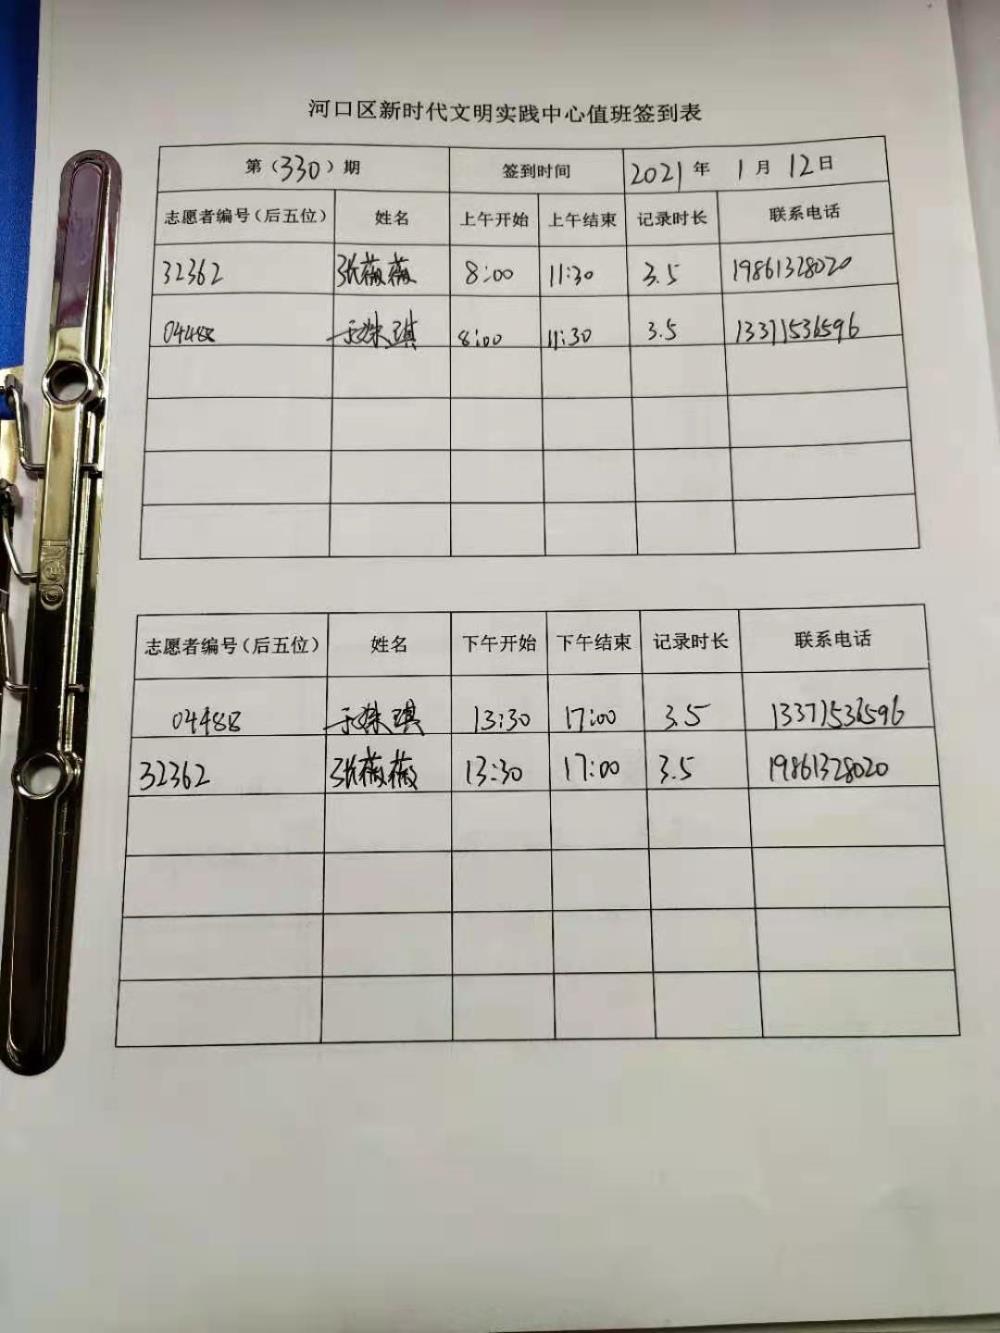 河口区新时代文明实践中心值班签到表
第（330）期 签到时间 2021年 1月 12日
志愿者编号（后五位） 姓名 上午开始 上午结束 记录时长 联系电话
32362 张薇薇 8:00 11:30 3.5 19861328020
04488 于姝琪 8:00 11:30 3.5 13371536596
志愿者编号（后五位） 姓名 下午开始 下午结束 记录时长 联系电话
04488 于姝琪 13:30 17:00 3.5 13371536596
32362 张薇薇 13:30 17:00 3.5 19861328020